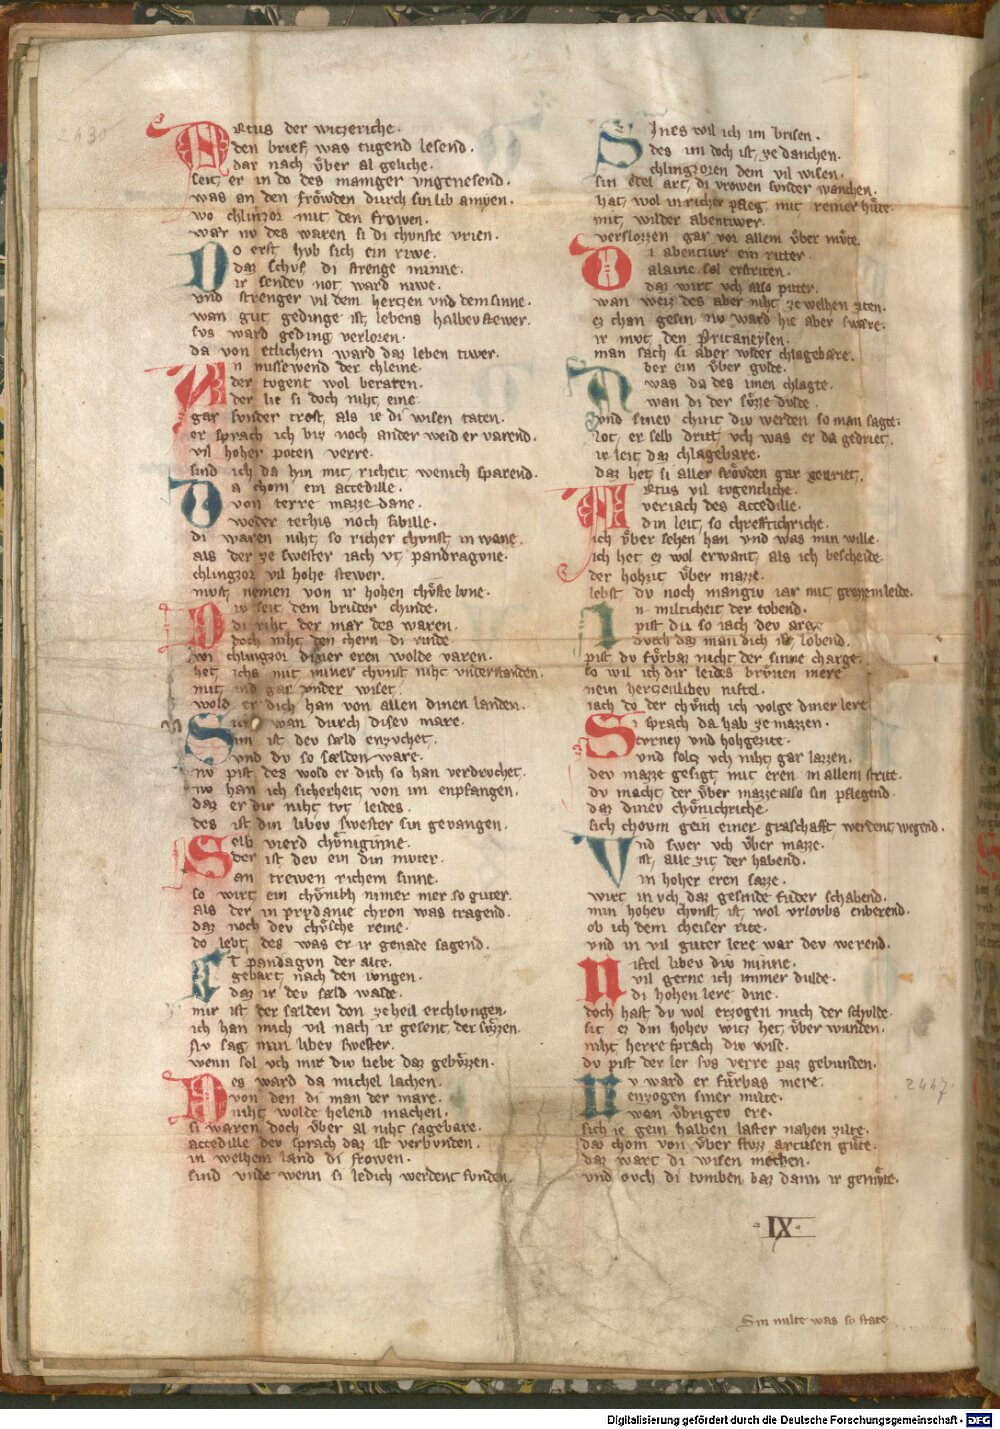 2430
Artus der witzeriche.
den brief was tugend lesend.
dar nach vͤber al geliche.
seit er in do des maniger vngenesend.
was an den frowden durch sin lib amyen.
wo chlinzor mit den frowen.
war nv des waren si di chvnste vrien.
Do erst hvb sich ein rwe.
daz schvf di strenge minne.
ir sendev not ward niwe.
vnd strenger vil dem hertzen vnd dem sinne.
wan gut gedinge ist lebens halbev stewer.
svs ward geding verloren.
da von etlichem ward daz leben tiwer.
An missewend der chleine.
der tvgent wol beraten.
der lie si doch niht eine.
gar svnder trost, als ie di wisen taten.
er sprach ich biz noch ander weid er varend.
vil hoher poten verre.
sind ich da hin mit richeit wenich sparend.
Da chom ein accedille.
von terre mazze dane.
weder techis noch sibille.
di waren niht so richer chvnst in wane.
als der ze swester iach vt pandragvne.
chlingzor vil hohe stewer.
mvst nemen von ir hohen chvste lvne.
Div seit dem brvder chinde.
di riht der mær des waren.
doch niht den chern di rinde.
wi chlingzor diner eren wolde varen.
het ichs mit miner chvnst niht vnderstanden.
mit gar vnder wiset.
wold er dich han von allen dinen landen.
wan durch disev mare.
im ist dev sæld enzvchet.
vnd dv so sælden ware.
nv pist des wold er dich so han verdrvchet.
nv han ich sicherheit von im enpfangen.
daz er dir niht tvt leides.
des ist din libev swester sin gevangen.
Selb vierd chöniginne.
der ist dev ein din mvter.
an trewen richem sinne.
so wirt ein chönich nimer mer so guter.
als der in prydanie chron was tragend.
daz noch dev chvsche reine.
do lebt des was er ir genade sagend.
Vt pandagvn der alte.
gebart nach den ivngen.
daz ir dev sæld walde.
mir ist der sælden don ze heil erchlvngen.
ich han mich vil nach ir gesent der svzzen.
nv sag min libev swester.
wenn sol vch mir div liebe daz gebvzzen.
Des ward da michel lachen.
von den di man der mare.
niht wolde helend machen.
si waren doch vͤber al niht sagebare.
accedille dev sprach daz ist verbvnden.
in welhem land di frowen.
sind vnde wenn si ledich werdent fvnden.
Sines wil ich im brisen.
des im doch ist ze danchen.
chlingzoren dem vil wisen.
sin edel art, di vrowen svnder wanchen.
hat wol in richer pfleg mit reiner hvte.
mit wilder abentiwer.
verslozzen gar vor allem vͤber mvte.
Di abentiwr ein rvter.
alaine sol erstriten.
daz wirt vch also pitter.
wan weiz des aber niht ze welhen ziten.
ez chan gesin nv ward hie aber swære.
ir mvt den Pritaneysen.
man sach si aber wider chlagebære.
Aber ein vͤber gvlde.
was da des imen chlagte.
wan di der svzze dvlde.
vnd sinev chint div werden so man sagte.
lot, er selb dritt vch was er da gedriet.
ir leit daz chlagebare.
daz het si aller frövden gar gevriet.
Artus vil tvgentliche.
veriach des accedille.
din leit so chrefftichriche.
ich vͤber sehen han vnd was min wille.
ich het ez wol erwant, als ich bescheide.
der hohzit vͤber mazze.
lebst dv noch mangiv iar mit grozem leide.
In milticheit der tobend.
pist div so iach dev arge
dvrch daz man dich ist lobend.
pist dv fvrbaz nicht der sinne charge.
so wil ich dir leides brvnen mere
nein hertzenlibev niftel.
iach do der chvnch ich volge diner lere
Si sprach da hab ze mazzen.
tvrney vnd hohgezite.
vnd solez vch niht gar lazzen.
dev mazze gesigt mit eren in allem strite.
dv macht der vͤber mazze also sin pflegend.
daz dinev chvnichriche.
sich chovm gein einer graschafft werdent wegend.
Vnd swer vch vͤber mazze.
ist, alle zit der habend.
in hoher eren sazze.
wirt in vch daz gesinde fvder schabend.
min hohev chvnst ist wol vrlovbs enberend.
ob ich dem cheiser rite.
vnd in vil guter lere war dev werend.
Niftel libev div minne.
vil gerne ich immer dvlde.
di hohen lere dine.
doch hast dv wol erzogen mich der schvlde.
sit ez din hohev witz het vͤber wunden.
niht herre sprach div wise.
dv pist der ler svs verre paz gebunden.
Nv ward er fvrbas mere.
enzogen siner milte.
wan vͤbrigev ere.
sich ie gein halben laster nahen zilte.
daz chom von vͤber flvzz artusen gute.
daz wart di wisen mechen.
vnd ovch di tvmben baz dann ir gemvte.
2447
·IX·
Sin milte was so state
Digitalisierung gefördert durch die Deutsche Forschungsgemeinschaft - DFG